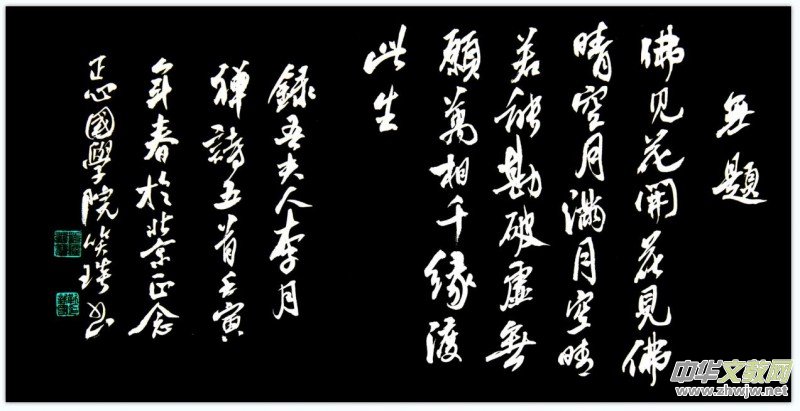 無題
佛見花開花見佛
晴空月滿月空晴
若能勘破虛無
願萬相千緣渡
此生
錄吾夫人李月
禪詩五首壬寅
年春於北京正念
正心國學院笑書
中华文教网
www.zhwjw.net